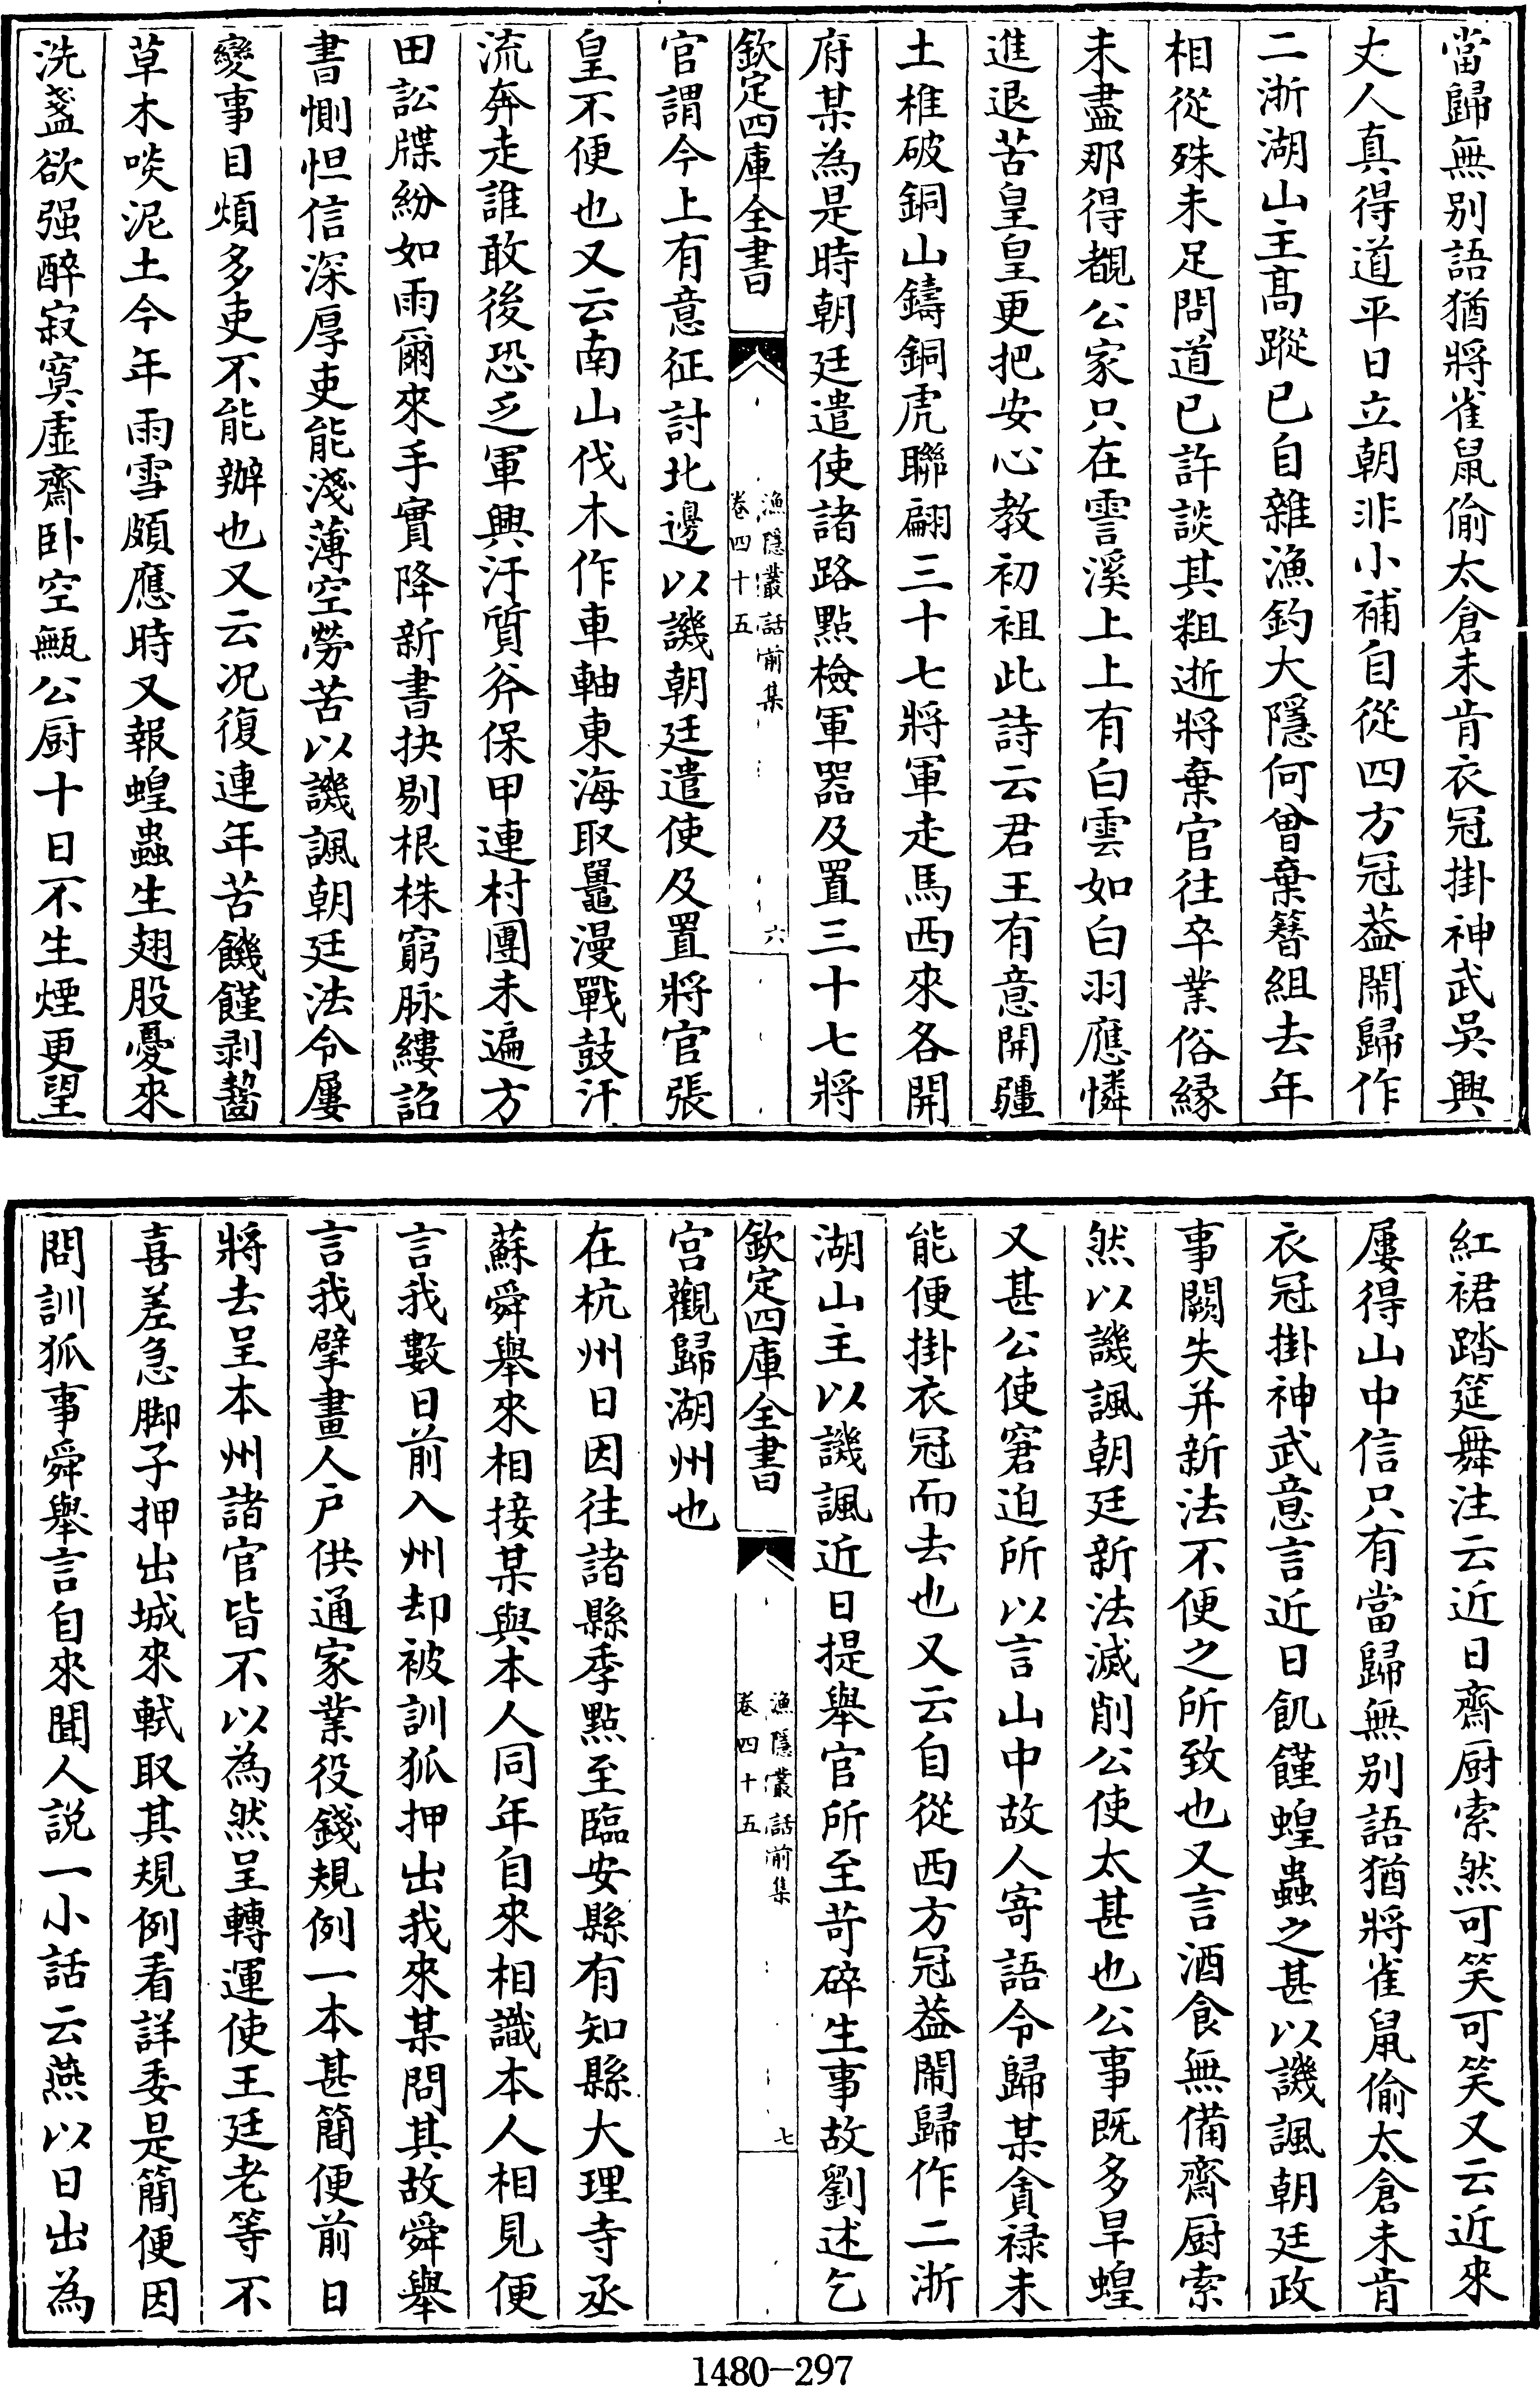 當歸無别語猶將雀鼠偷太倉未肯衣冠掛神武吳興
丈人真得道平日立朝非小補自從四方冠葢閙歸作
二浙湖山主髙蹤已自雜漁釣大隱何曾棄簪組去年
相從殊未足問道已許談其粗逝將棄官往卒業俗縁
未盡那得覩公家只在霅溪上上有白雲如白羽應憐
進退苦皇皇更把安心教初祖此詩云君王有意開疆
土椎破銅山鑄銅虎聯翩三十七將軍走馬西來各開
府某為是時朝廷遣使諸路點檢軍器及置三十七將
欽定四庫全書
漁隱叢話前集
卷四十五
六
官謂今上有意征討北邊以譏朝廷遣使及置將官張
皇不便也又云南山伐木作車軸東海取鼉漫戰鼓汗
流奔走誰敢後恐乏軍興汙質斧保甲連村團未遍方
田訟牒紛如雨爾來手實降新書抉剔根株窮脉縷詔
書惻怛信深厚吏能淺薄空勞苦以譏諷朝廷法令屢
變事目煩多吏不能辦也又云况復連年苦饑饉剥齧
草木啖泥土今年雨雪頗應時又報蝗蟲生翅股憂來
洗盞欲强醉寂寞虛齋卧空甒公厨十日不生煙更望
紅裙踏筵舞注云近日齋厨索然可笑可笑又云近來
屢得山中信只有當歸無别語猶將雀鼠偷太倉未肯
衣冠掛神武意言近日飢饉蝗蟲之甚以譏諷朝廷政
事闕失并新法不便之所致也又言酒食無備齋厨索
然以譏諷朝廷新法減削公使太甚也公事既多旱蝗
又甚公使窘迫所以言山中故人寄語令歸某貪禄未
能便掛衣冠而去也又云自從西方冠葢閙歸作二浙
湖山主以譏諷近日提舉官所至苛碎生事故劉述乞
欽定四庫全書
漁隱叢話前集
卷四十五
七
宫觀歸湖州也
在杭州日因往諸縣季點至臨安縣有知縣大理寺丞
蘇舜舉來相接某與本人同年自來相識本人相見便
言我數日前入州却被訓狐押出我來某問其故舜舉
言我擘畫人户供通家業役錢規例一本甚簡便前日
將去呈本州諸官皆不以為然呈轉運使王廷老等不
喜差急脚子押出城來軾取其規例看詳委是簡便因
問訓狐事舜舉言自來聞人説一小話云燕以日出為
1480-297